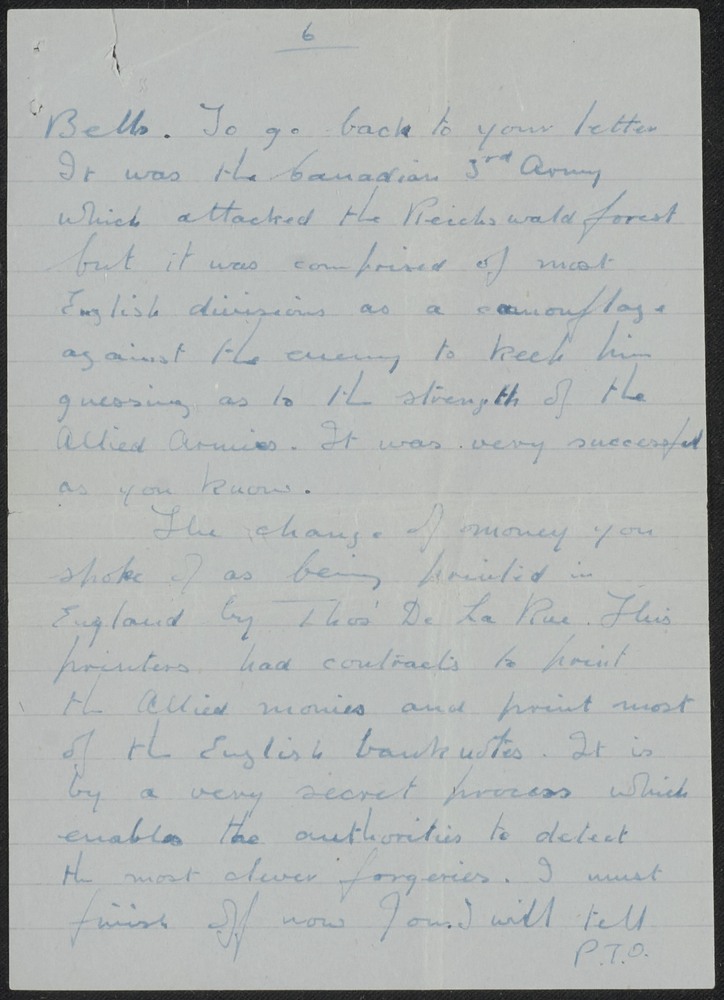 6
Bells. To go back to your letter
It was the Canadian 3rd Army
which attacked the Reichswald forest
but it was comprised of most
English divisions as a camouflage
against the enemy to keep him
guessing as to the strength of the
Allied Armies. It was very successful
as you know.
The change of money you
spoke of as being printed in
England by Thos De La Rue. This
printers had contracts to print
the Allied monies and print most
of the English banknotes. It is
by a very secret process which
enables the authorities to detect
the most clever forgeries. I must
finish off now and will tell
P.T.O.